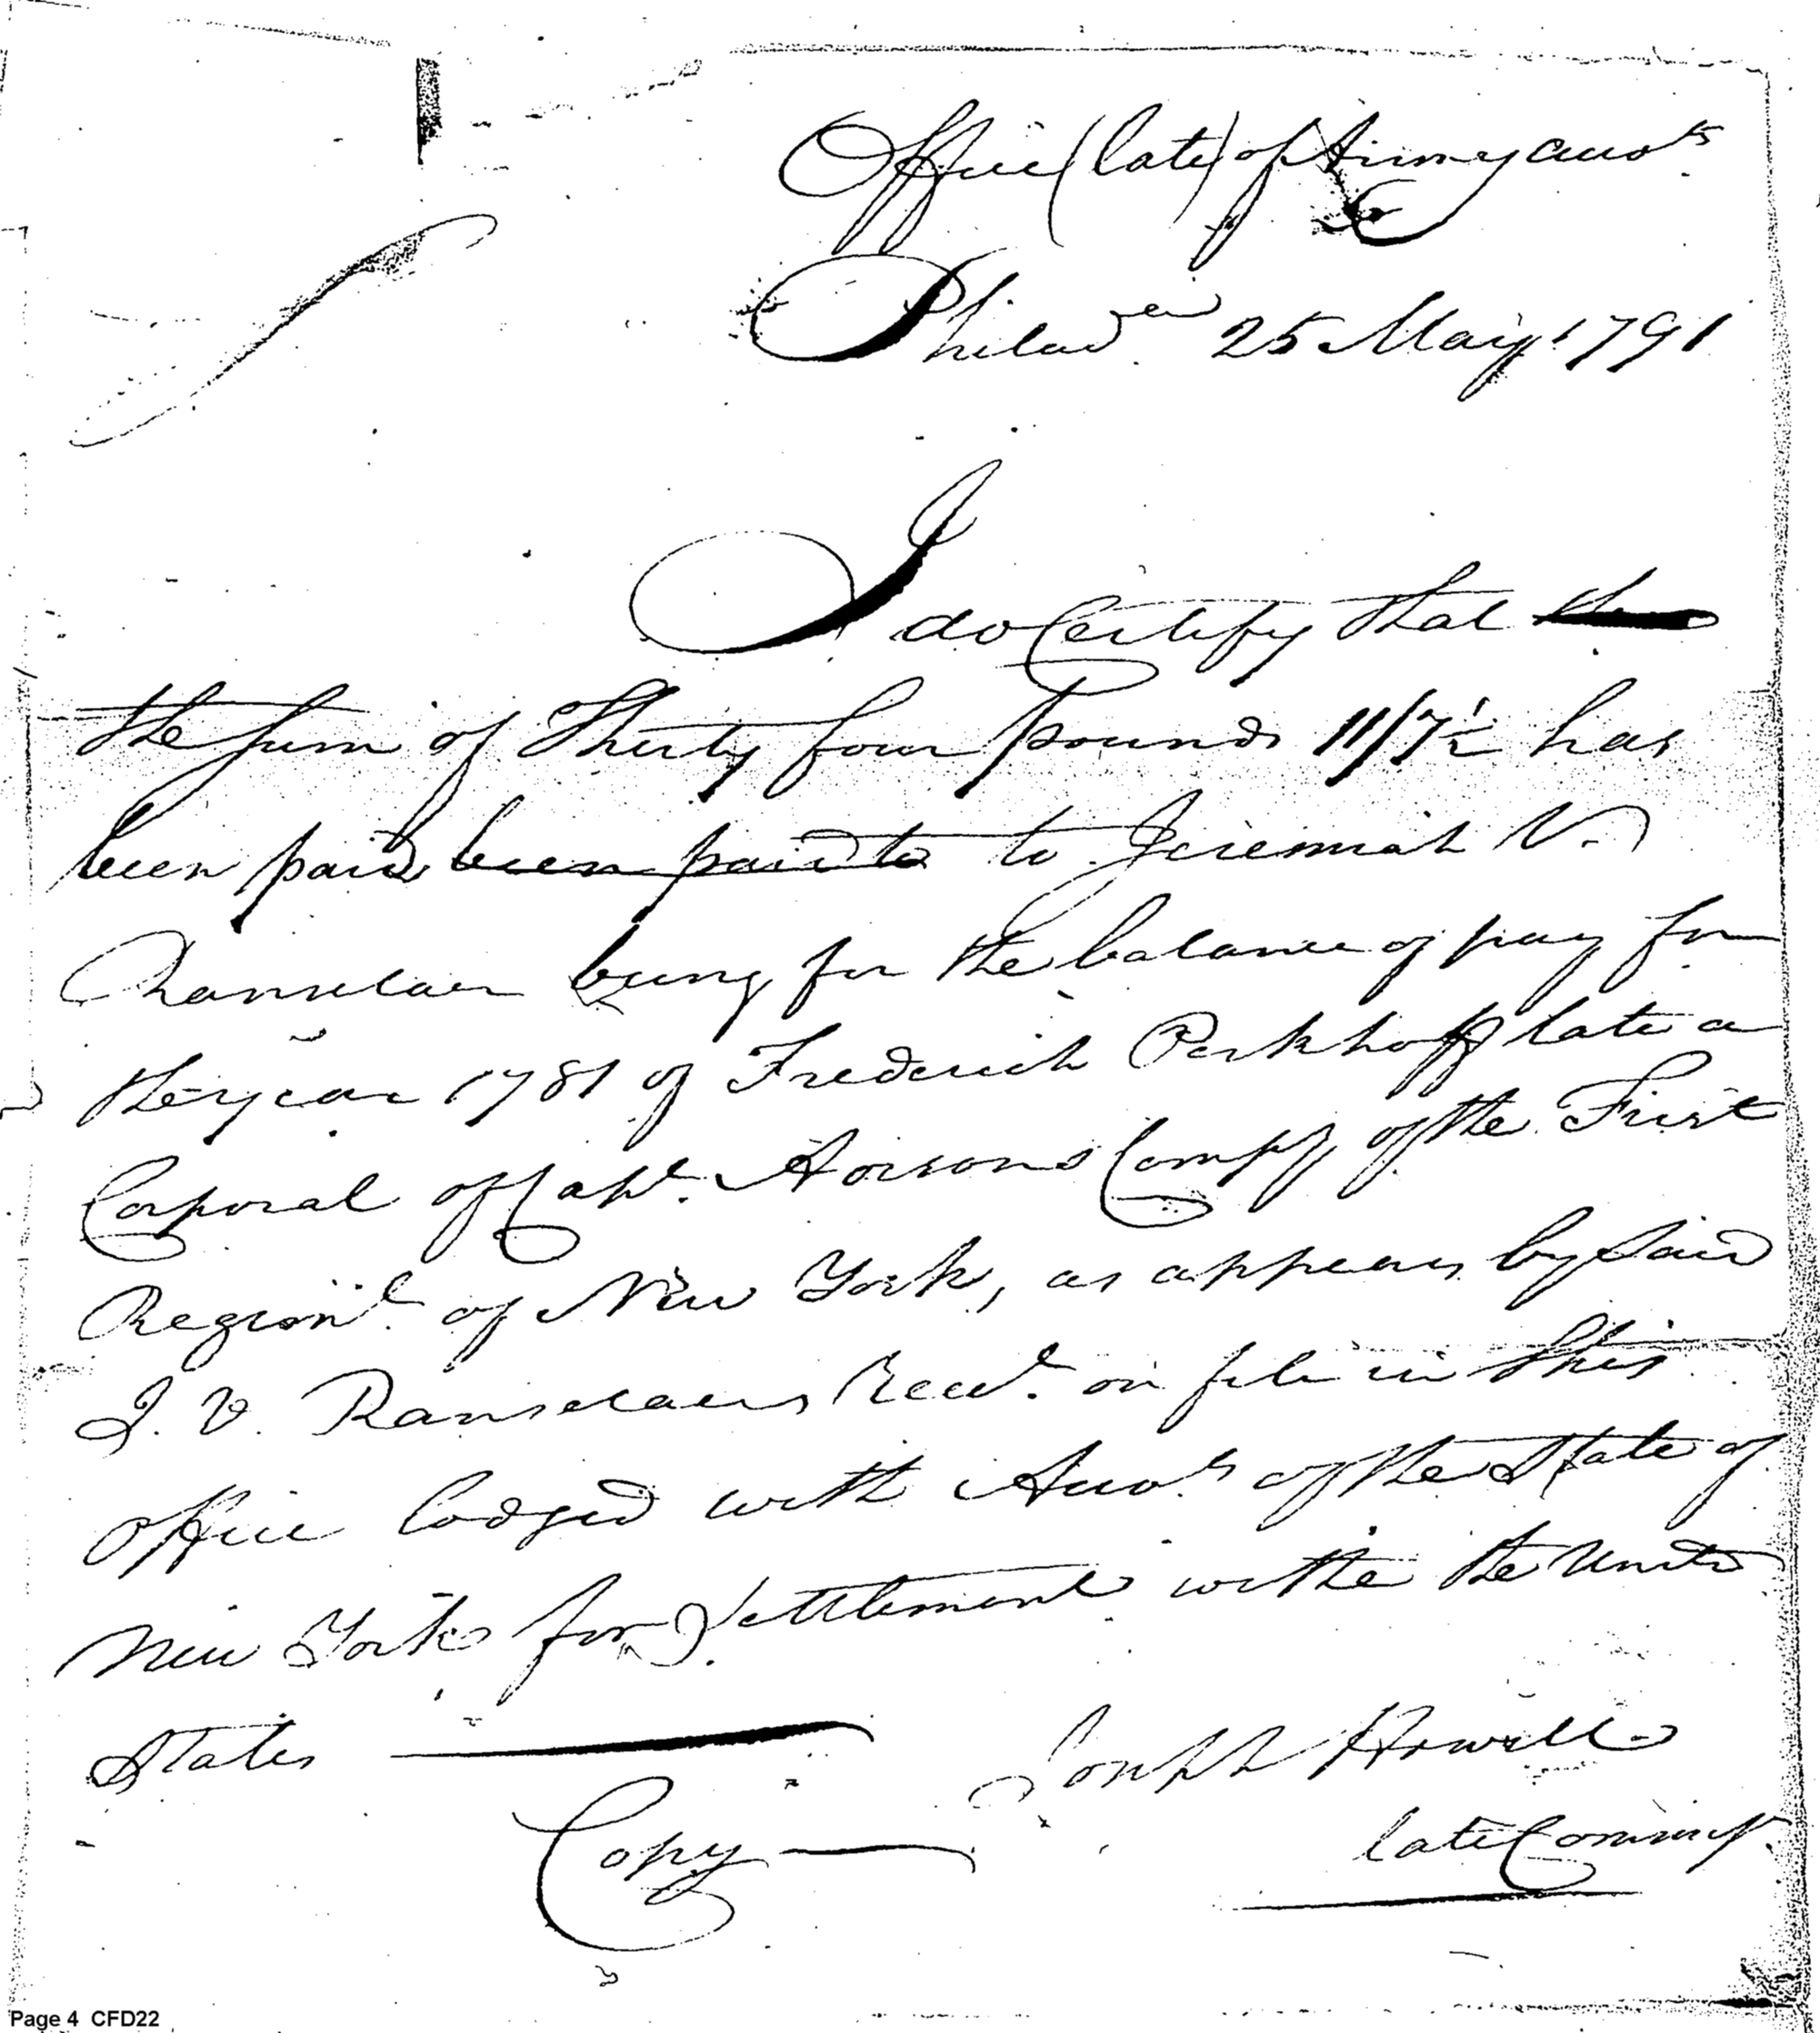 Office (late) of Army Accots
Philada 25 May 1791
I do Certify that the
the sum of Thirty four pounds 11/7½ has
been paid been paid to to Jeremiah V.
Ranselaer being for the balance of pay for
the year 1781 of Frederick Perkhoff late a
Corporal of Capt. Aorsons Compy of the First
Regimt. of New York, as appears by said
J. V. Ranselaers Recet. on file in this
office lodged with Accots of the State of
New York for Settlement with the United
States
Joseph Howell
Copy
late Commisr.
Page 4 CFD22